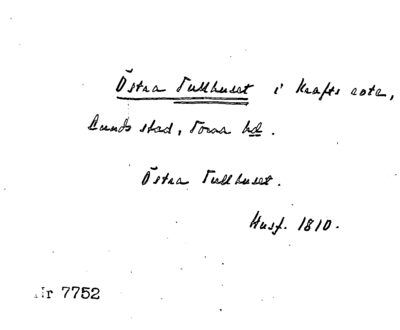 Östra Tullhuset i Krafts rote,
Lunds stad, Torna hd.
Östra Tullhuset.
Husf. 1810.
Nr 7752